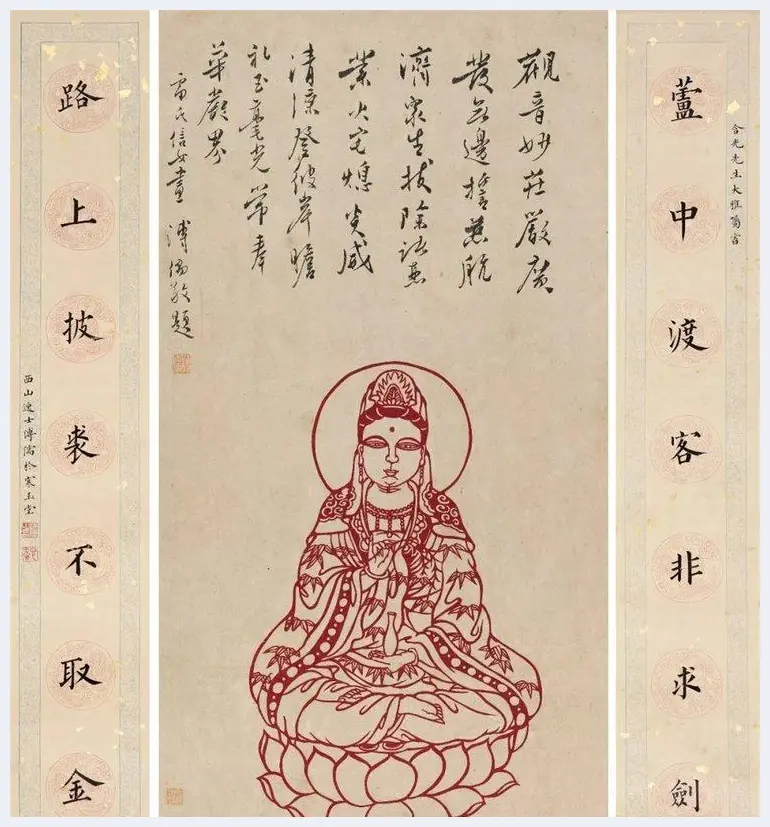 合光先生大雅屬書
蘆中渡客非求劍
觀音妙莊嚴廣
發無邊誓慈航
濟眾生拔除諸惡
業火宅熄炎威
清涼登彼岸瞻
礼玉毫光常奉
華嚴界
雷氏信女畫 溥儒敬題
路上披裘不取金
西山逸士溥儒於寒玉堂